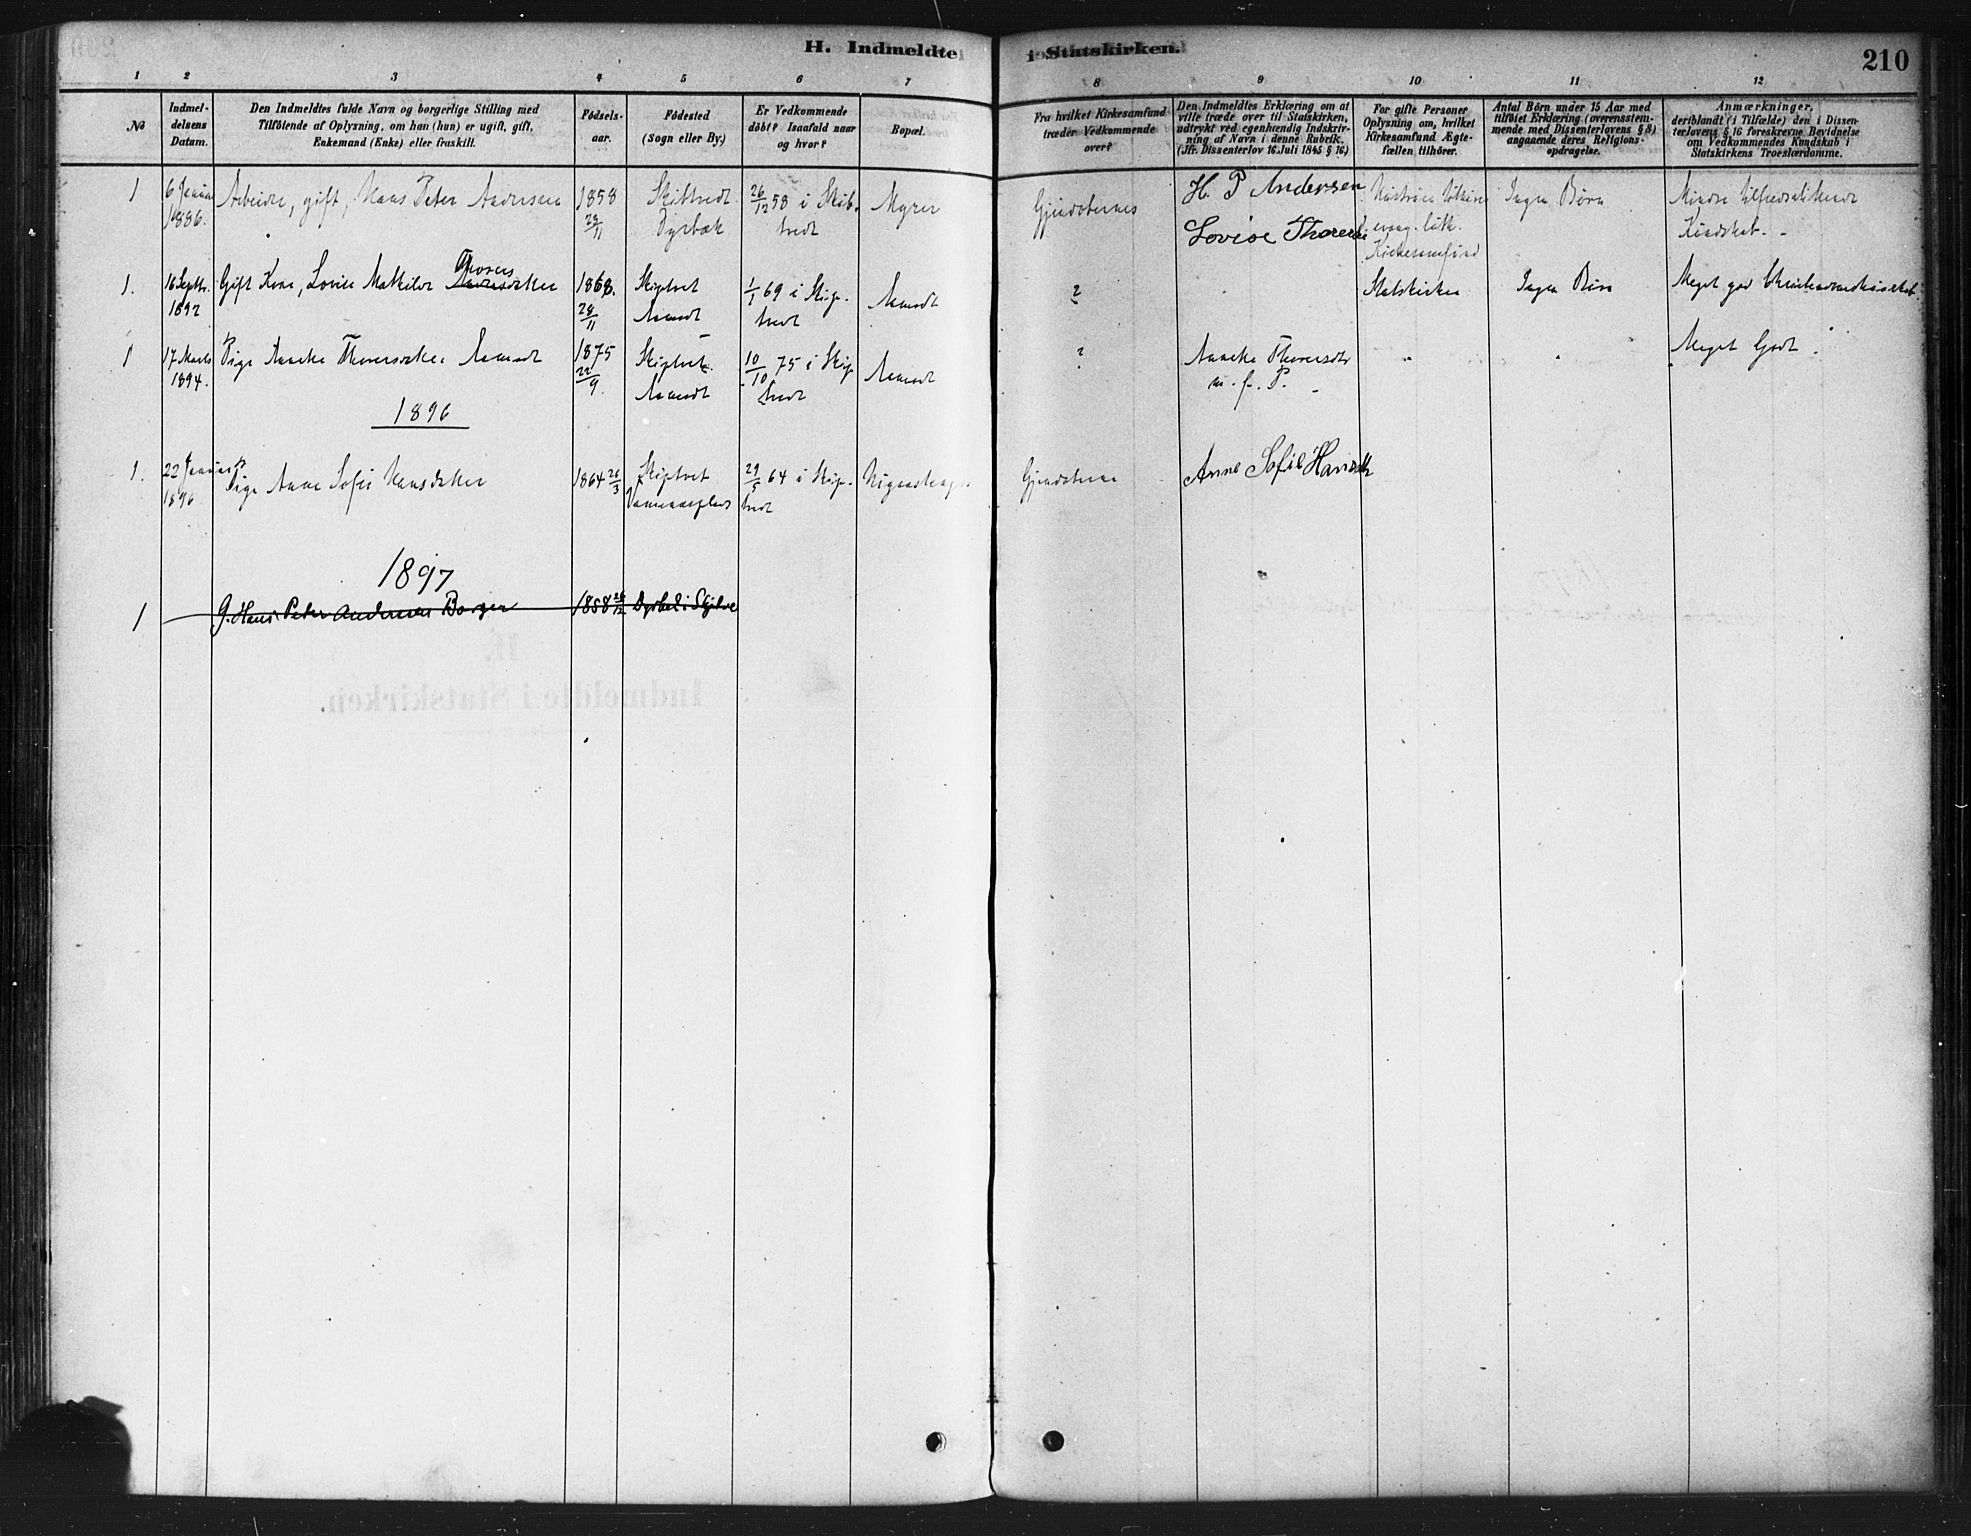 H. Indmeldte i Statskirken.
210
1 2 3 4 5 6 7 8 9 10 11 12
No
Indmel-
delsens
Datum.
Den Indmeldtes fulde Navn og borgerlige Stilling med
Tilföiende af Oplysning, om han (hun) er ugift, gift,
Enkemand (Enke) eller fraskilt.
Födsels-
aar.
Födested
(Sogn eller By.)
Er Vedkommende
döbt? Isaafald naar
og hvor?
Bopæl.
Fra hvilket Kirkesamfund
træder Vedkommende
over?
Den Indmeldtes Erklæring om at
ville træde over til Statskirken,
udtrykt ved egenhændig Indskriv-
ning af Navn i denne Rubrik.
(Jfr. Dissenterlov 16. Juli 1845 § 16.)
For gifte Personer
Oplysning om, hvilket
Kirkesamfund Ægte-
fællen tilhörer.
Antal Börn under 15 Aar med
tilföiet Erklæring (overensstem-
mende med Dissenterlovens § 8)
angaaende deres Religions-
opdragelse.
Anmærkninger,
deriblandt (i Tilfælde) den i Dissen-
terlovens § 16 foreskrevne Bevidnelse
om Vedkommendes Kundskab i
Statskirkens Troeslærdomme.
1
6 Januar
1886.
Arbeider, gift, Hans Peter Andersen
1858
28/11
Skiptvedt
Dyrbæk
26/12 58 i Skib-
tvedt
Myrer
Gjendøbernes
H. P Andersen
evang. luth.
Kirkesamfund
Ingen Børn
Mindre tilfredsstillende
Kundskab. -
1.
16 Septbr.
1892
Gift Kone, Lovise Mathilde Thorers datter
1868.
28/11
Skiptvet
Aamodt
1/1 69 i Skip-
tvedt
Aamodt
?
Lovise Thorersd.
Statskirken
Ingen Børn
Meget god
1
17 Marts
1894.
Pige Anneke Thorersdatter Aamodt
1875
22/9.
Skiptvet.
Aamodt
10/10 75 i Skip
tvedt
Aamodt
?
Anneke Thorersdtr
m. f. P. -
"
"
Meget Godt.
1896
1.
22 Januar
1896
Pige Anne Sofie Hansdatter
1864 26/3
Skiptvet
29/5 64 i Skip-
tvedt
Gjendøberne
Anne Sofie Hansdtr
1897
1
G. Hans Peter Andersen Borgen
1858 28/12
Dyrbek i Skiptve